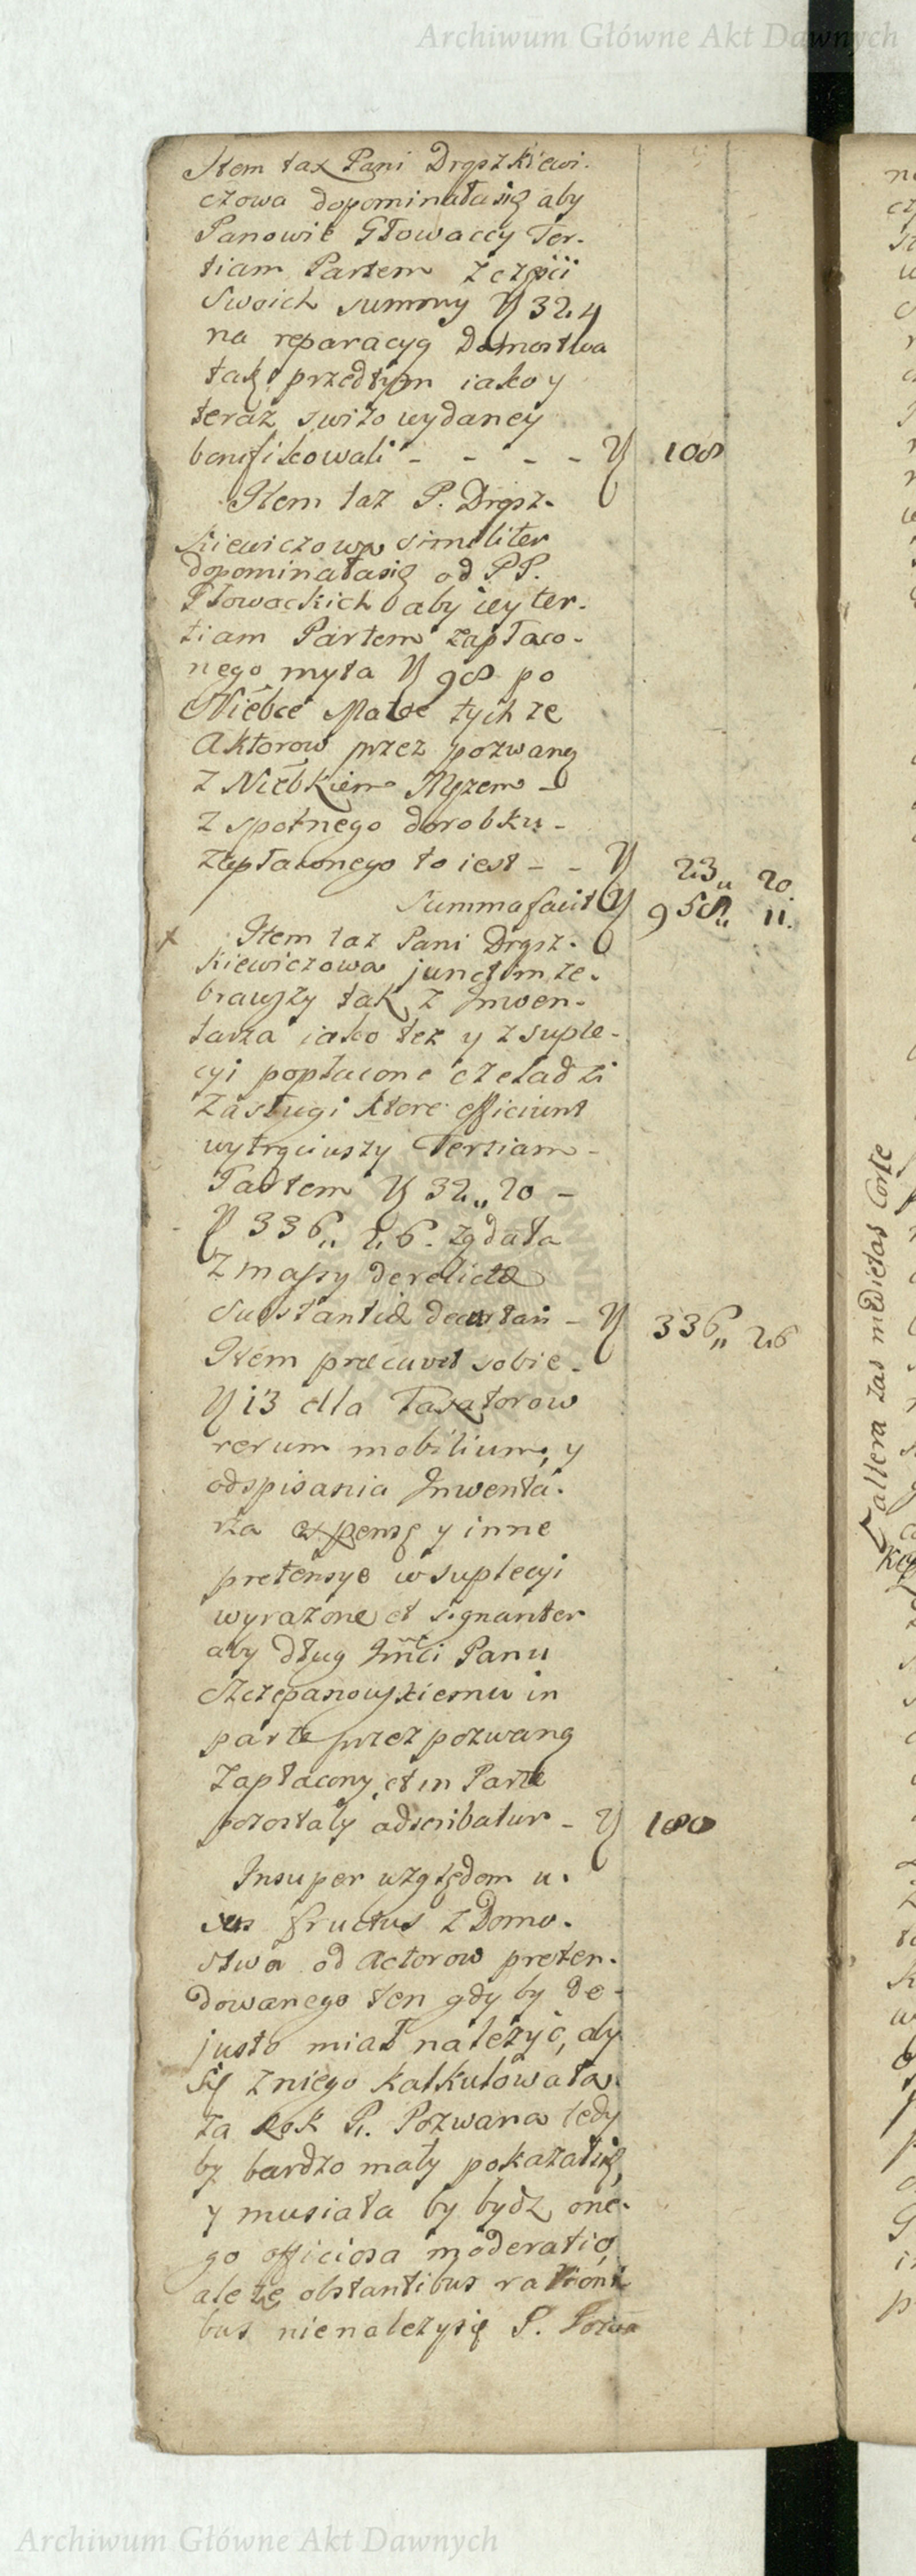 Archiwum Główne Akt Dawnych
Item taż Pani Drąszkiewi-
czowa dopominała się aby
Panowie Głowaccy Ter-
tiam Partem z częśći
swoich summy 324
na reparacyą Domostwa
tak przedtym iako y
teraz swiżo wydaney
bonifikowali - - - - 108
Item taż P. Drąsz-
kiewiczowa similiter
dopominała się od PP.
Głowackich aby iey ter-
tiam Partem zapłaco-
nego myta 98 po
Niebce Matce tychże
Aktorow przez pozwaną
z Niebkiem Mężem -
z spolnego dorobku -
zapłaconego to iest - - 23,, 20.
Summa facit 958,, 11.
x Item taż Pani Drąsz-
kiewiczowa junctim ze-
brawszy tak z Inwen-
tarza iako też y z suple-
cyi popłacone czeladzi
zasługi ktore efficiunt
wytrąciwszy Tertiam -
Partem 32,, 20 -
336,, 26. żądała
z massy derelictæ
Substantiæ - 336,, 26
Item præcavet sobie -
13 dla Taxatorow
rerum mobilium, y
odspisania Inwenta-
rza expensę y inne
pretensye w suplecyi
wyrażone et signanter
aby dług Jmci Panu
Szczepanowskiemu in
parte przez pozwaną
zapłacony, et in Parte
pozostały adscribatur - 180
Insuper względem u-
sus fructus z Domo-
stwa od Actorow preten-
dowanego ten gdy by de
justo miał należyć, aby
się z niego kalkulowała
za Rok P. Pozwana tedy
by bardzo mały pokazał się,
y musiała by bydz one-
go officiosa moderatio,
ale że obstantibus rationi
bus nienależy się P. Pozwa
altera zas medietas
Archiwum Główne Akt Dawnych